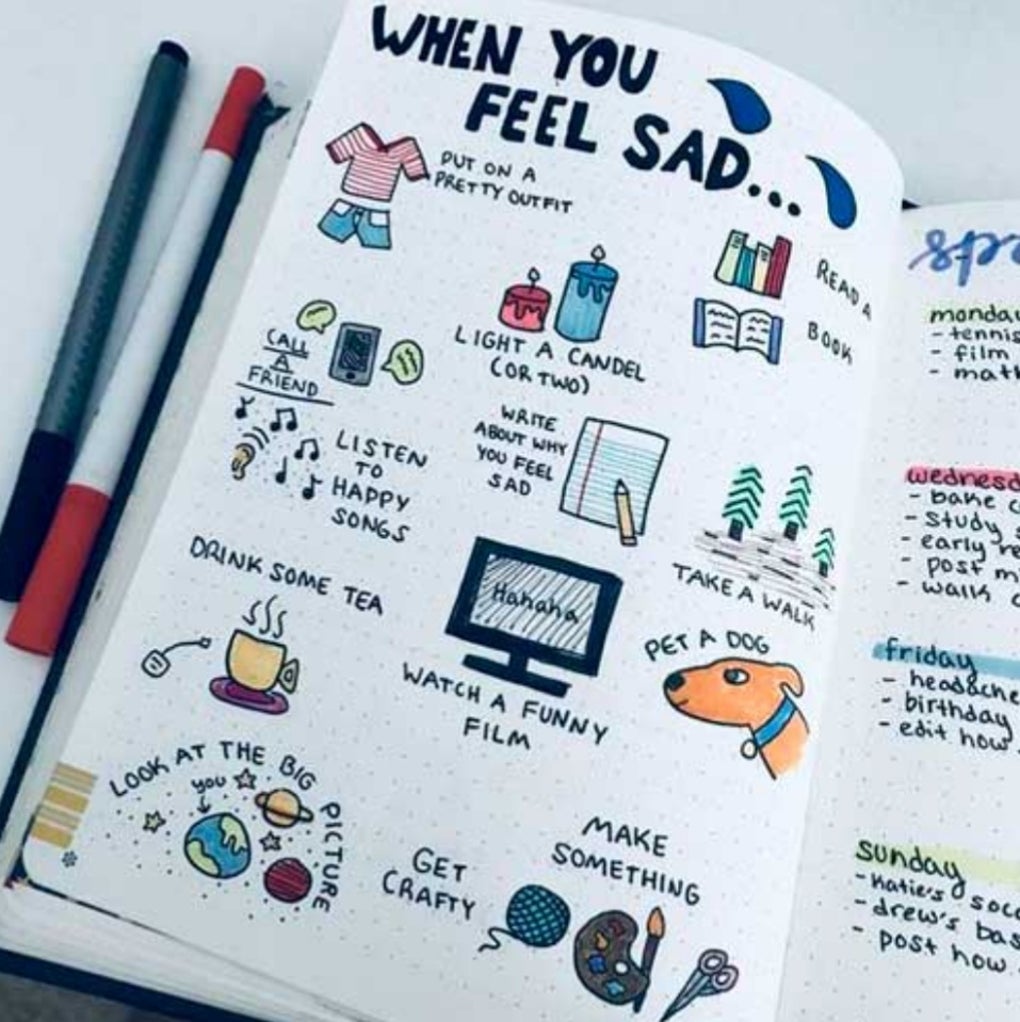 WHEN YOU
FEEL SAD...
PUT ON A
PRETTY OUTFIT
LIGHT A CANDEL
(OR TWO)
READ A
BOOK
CALL
A
FRIEND
LISTEN
TO
HAPPY
SONGS
WRITE
ABOUT WHY
YOU FEEL
SAD
TAKE A WALK
DRINK SOME TEA
Hahaha
WATCH A FUNNY
FILM
PET A DOG
LOOK AT THE BIG PICTURE
you
GET
CRAFTY
MAKE
SOMETHING
monday
- tennis
- film
- math
wednesd
- bake
- study
- early
- post
- walk
friday
- headache
- birthday
- edit how
sunday
- Katie's
- drew's
- post how